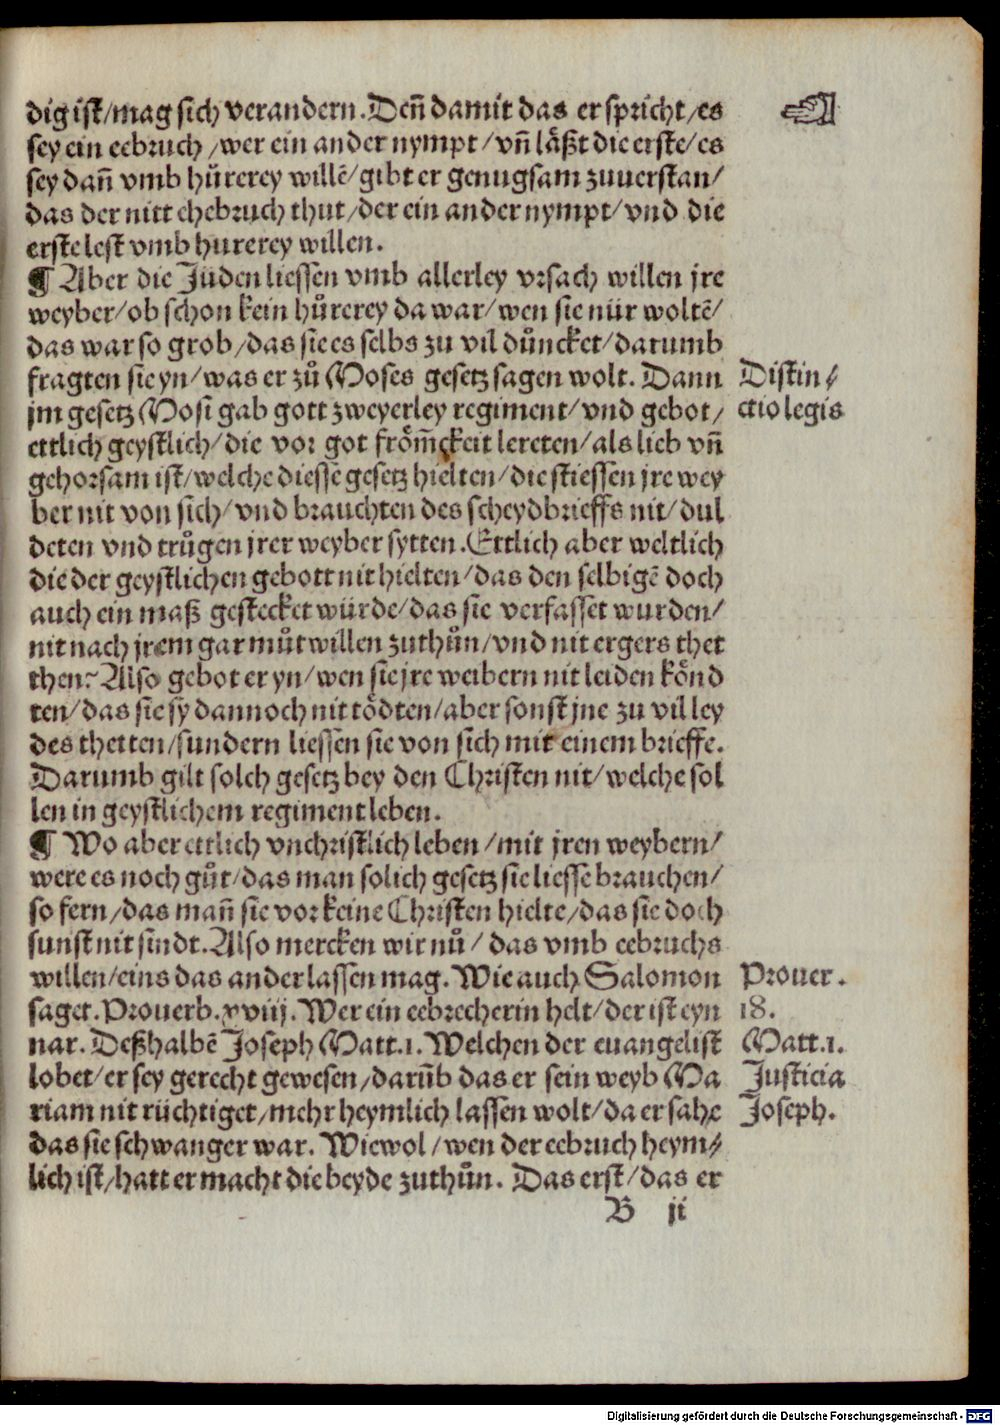 dig ist/mag sich verandern. Deñ damit das er spricht/es
sey ein eebruch/wer ein ander nympt/vñ läßt die erste/es
sey dañ vmb hůrerey willẽ/gibt er genugsam zuuerstan/
das der nitt ehebruch thut/der ein ander nympt/vnd die
erste lest vmb hurerey willen.
¶ Aber die Jüden liessen vmb allerley vrsach willen jre
weyber/ob schon kein hůrerey da war/wen sie nür woltẽ/
das war so grob/das sie es selbs zu vil důncket/darumb
fragten sie yn/was er zů Moses gesetz sagen wolt. Dann
jm gesetz Mosi gab gott zweyerley regiment/vnd gebot/
ettlich geystlich/die vor got fröm̃ckeit lereten/als lieb vñ
gehorsam ist/welche diesse gesetz hielten/die stiessen jre wey
ber nit von sich/vnd brauchten des scheydbrieffs nit/dul
deten vnd trůgen jrer weyber sytten. Ettlich aber weltlich
die der geystlichen gebott nit hielten/das den selbigẽ doch
auch ein maß gestecket würde/das sie verfasset wurden/
nit nach jrem gar můtwillen zuthůn/vnd nit ergers thet
then. Also gebot er yn/wen sie jre weibern nit leiden könd
ten/das sie sy dannoch nit tödten/aber sonst jne zu vil ley
des thetten/sundern liessen sie von sich mit einem brieffe.
Darumb gilt solch gesetz bey den Christen nit/welche sol
len in geystlichem regiment leben.
¶ Wo aber ettlich vnchristlich leben/mit jren weybern/
were es noch gůt/das man solich gesetz sie liesse brauchen/
so fern/das mañ sie vor keine Christen hielte/das sie doch
sunst nit sindt. Also mercken wir nů/das vmb eebruchs
willen/eins das ander lassen mag. Wie auch Salomon
saget. Prouerb. xviij. Wer ein eebrecherin helt/der ist eyn
nar. Deßhalbẽ Joseph Matt.1. Welchen der euangelist
lobet/er sey gerecht gewesen/darũb das er sein weyb Ma
riam nit rüchtiget/mehr heymlich lassen wolt/da er sahe
das sie schwanger war. Wiewol/wen der eebruch heym⸗
lich ist/hatt er macht die beyde zuthůn. Das erst/das er
B ij
Distin⸗
ctio legis
Prouer.
18.
Matt.1.
Justicia
Joseph.
Digitalisierung gefördert durch die Deutsche Forschungsgemeinschaft - DFG